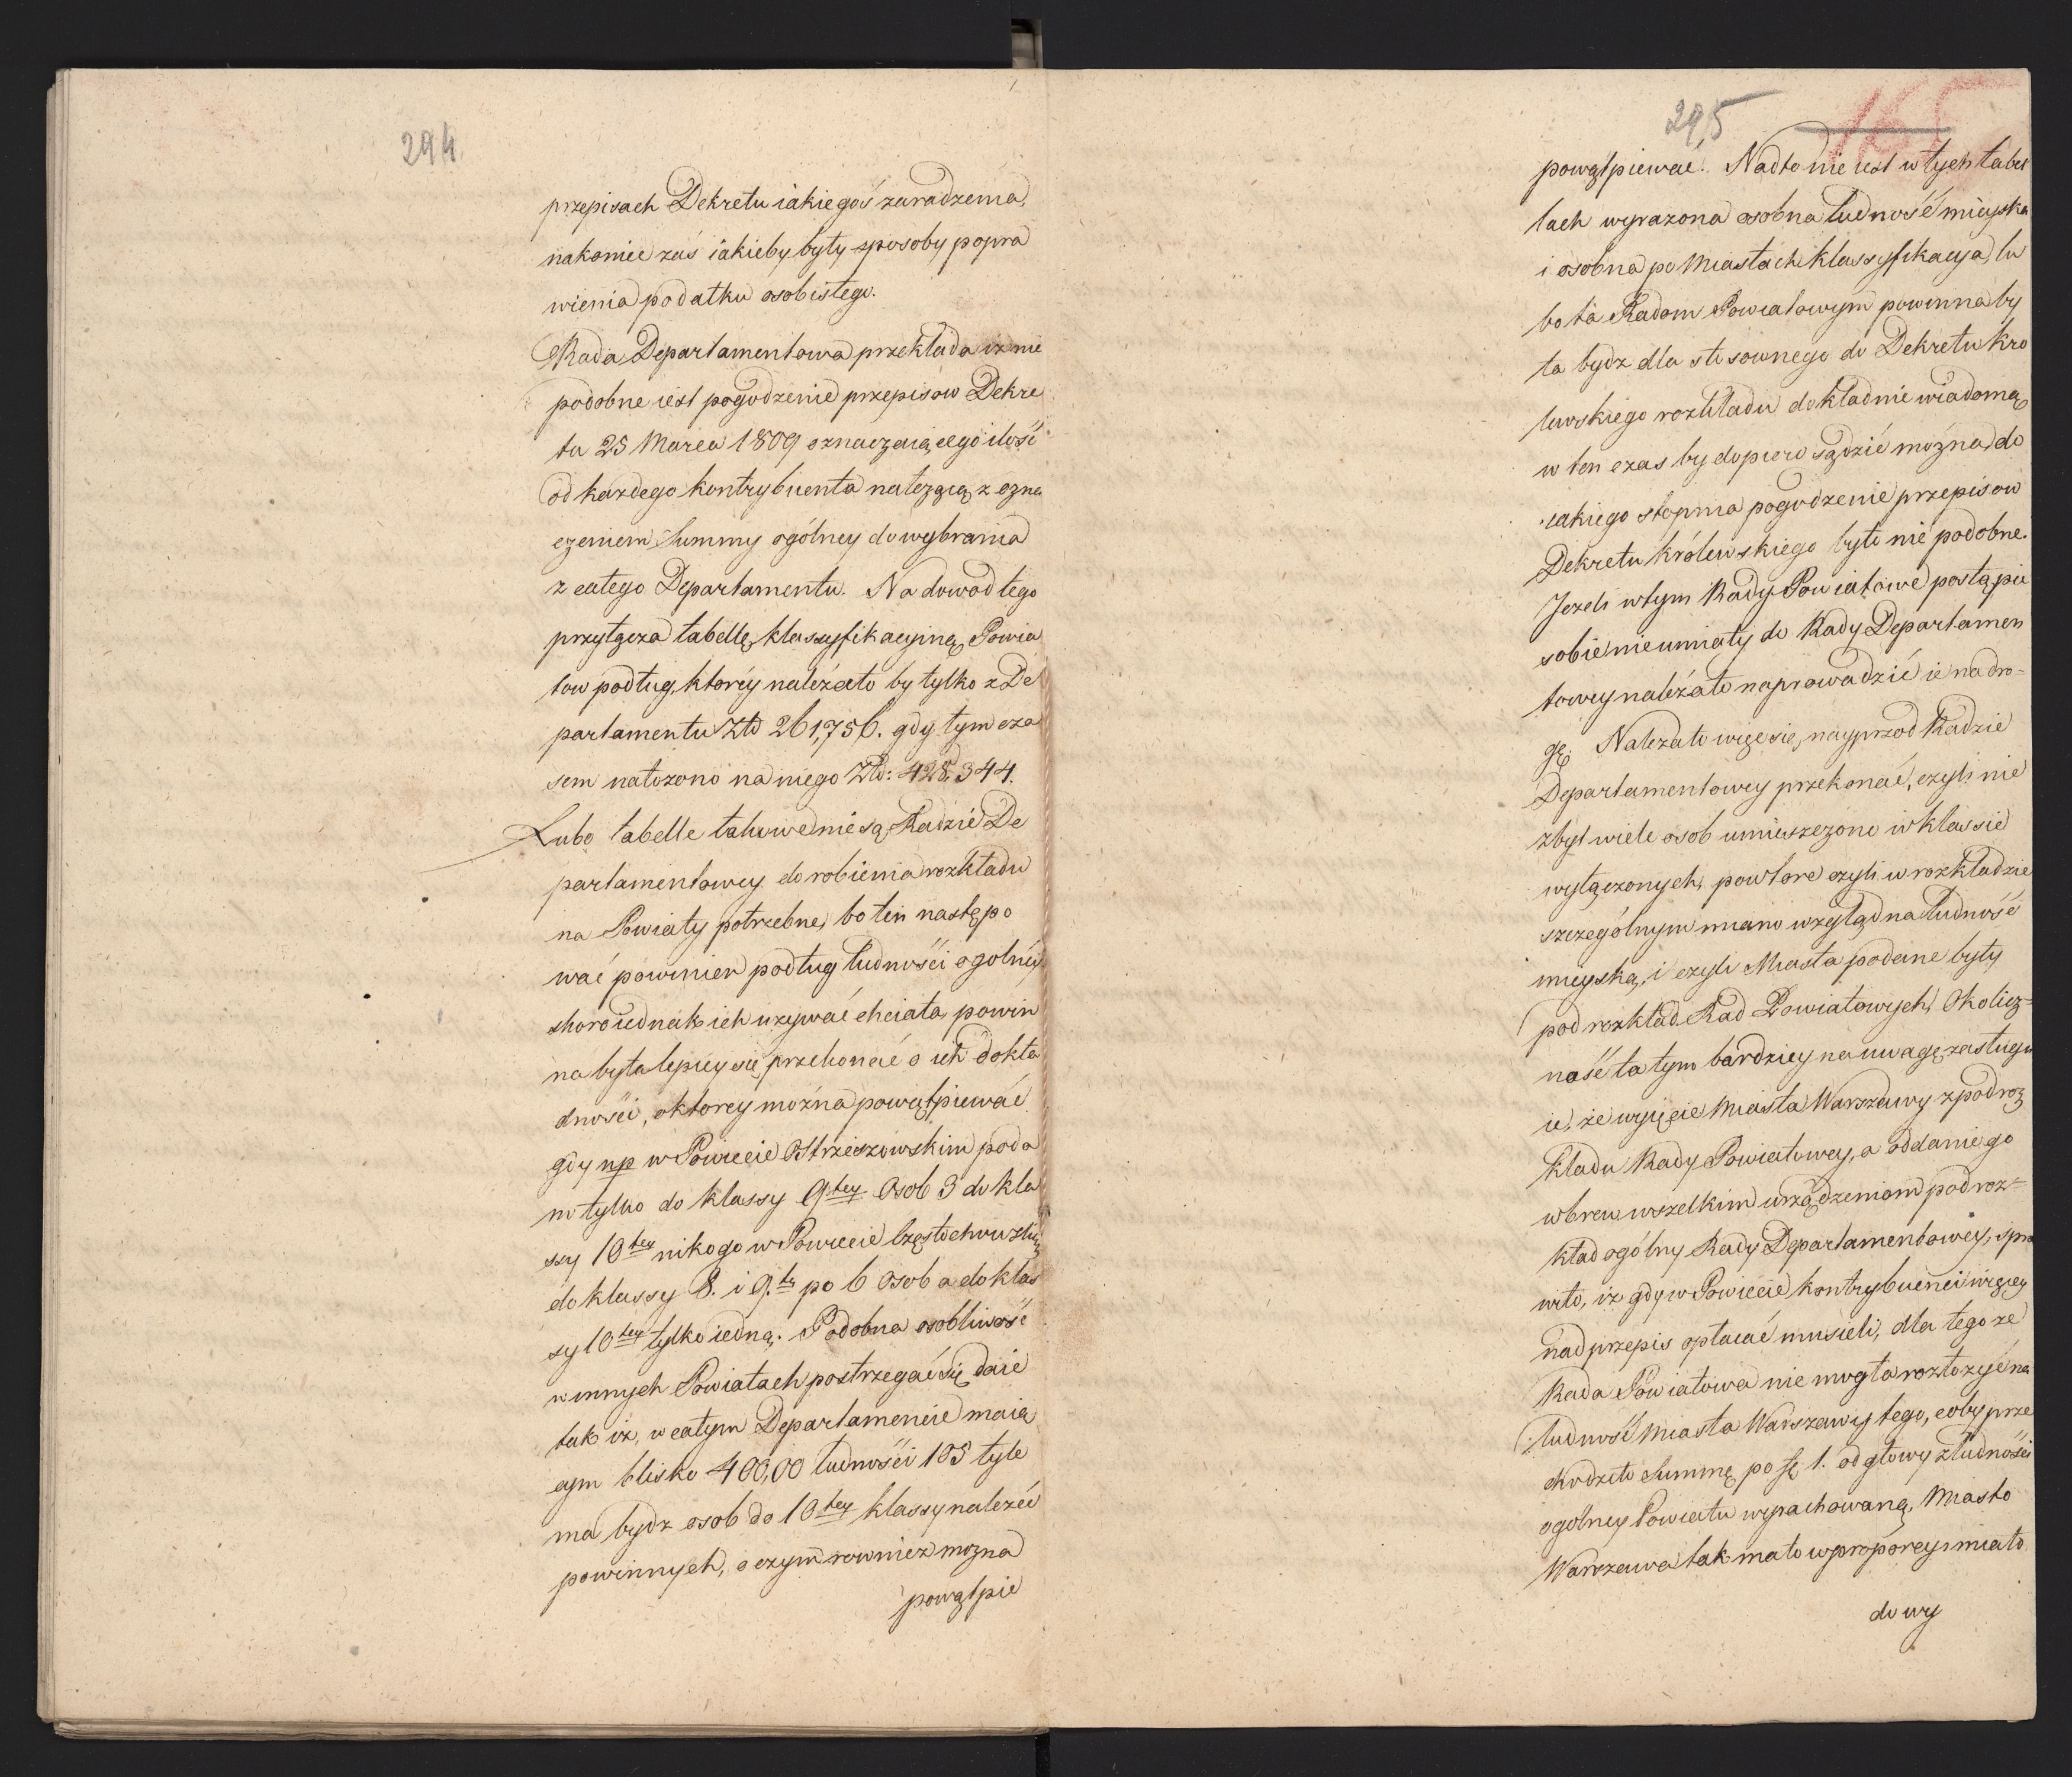 294
przepisach Dekretu iakiegoś zaradzenia,
nakoniec zaś iakieby były sposoby popra
wienia podatku osobistego.
Rada Departamentowa przekłada iż nie
podobne iest pogodzenie przepisow Dekre
tu 25 Marca 1809 oznaczaiącego ilość
od każdego kontrybuenta należącą z ozna
czeniem Summy ogólney do wybrania
z całego Departamentu. Na dowod tego
przyłącza tabellę klassyfikacyiną Powia
tow podług którey należało by tylko z De
partamentu Złt 261,756. gdy tym cza
sem nałożono na niego Złt: 428,344.
Lubo tabelle takowe nie są Radzie De
partamentowey do robienia rozkładu
na Powiaty potrzebne, bo ten następo
wać powinien podług ludności ogolnéy
skoro iednak ich używać chciała, powin
na była lepiey się przekonać o ich dokła
dności, o ktorey można powątpiewać
gdy np w Powiecie Ostrzeszowskim poda
no tylko do klassy 9tey Osob 3 do kla
ssy 10tey nikogo w Powiecie Częstochowskim
do klassy 8. i 9.ty po 6 Osob a do klas
sy 10tey tylko iedną. Podobna osobliwość
w innych Powiatach postrzegać się daie
tak iż, w całym Departamencie maią
cym blisko 400,00 ludności 105 tyle
ma bydz osob do 10tey klassy należeć
powinnych, o czym rownież można
powątpie
295
165
powątpiewać. Nadto nie iest w tych tabel
lach wyrażona osobna ludność mieyska
i osobna po Miastach klassyfikacya, lu
bo ta Radom Powiatowym powinna by
ła bydz dla stosownego do Dekretu Kro
lewskiego rozkładu dokładnie wiadomą,
w ten czas by dopiero sądzić można do
iakiego stopnia pogodzenie przepisow
Dekretu Królewskiego było nie podobne.
Jeżeli w tym Rady Powiatowe postąpić
sobie nie umiały do Rady Departamen
towey należało naprowadzić ie na dro-
gę. Należało więc się nayprzod Radzie
Departamentowey przekonać, czyli nie
zbyt wiele osob umieszczono w klassie
wyłączonych, powtore czyli w rozkładzie
szczególnym miano wzgląd na ludność
mieyską, i czyli Miasta podane były
pod rozkład Rad Powiatowych, Okolicz=
ność ta tym bardziey na uwagę zasługu
ie, że wyięcie Miasta Warszawy z pod roz
kładu Rady Powiatowey, a oddanie go
wbrew wszelkim urządzeniom pod roz=
kład ogólny Rady Departamentowey, spra
wiło, iż gdy w Powiecie kontrybuenci więcey
nad przepis opłacać musieli, dla tego że
Rada Powiatowa nie mogła rozłożyć na
ludność Miasta Warszawy tego, coby prze
chodziło Summę po f. 1. od głowy z ludności
ogólney Powiatu wyrachowaną, Miasto
Warszawa tak mało w proporcyi miało
do wy